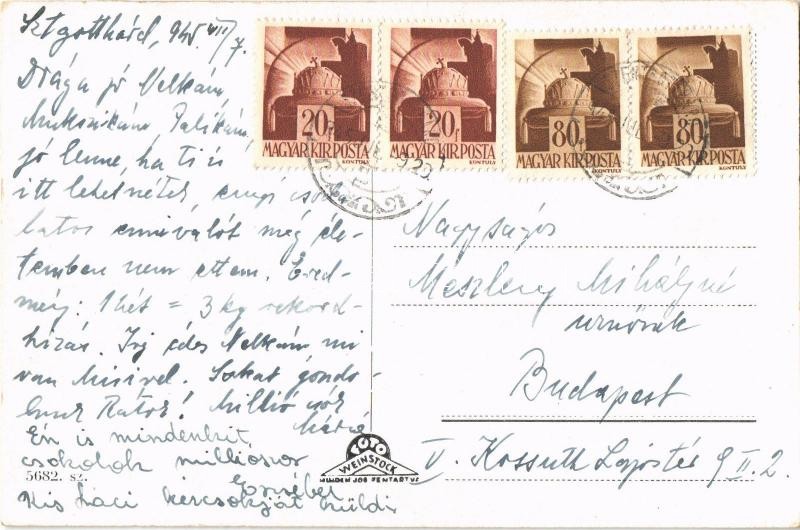 Szt gotthárd, 945. VIII/7.
Drága jó Nelkám,
Mukszikám, Palikám,
jó lenne, ha ti is
itt lehetnétek, ennyi cso-
latos ennivalót még éle-
temben nem ettem. Ered-
mény: 1 hét = 3 kg rekord-
hízás. Írj édes Nelkám mi
van Misivel. Sokat gondo-
lunk Rátok! Millió csók
Én is mindenkit
csókolok milliószor
Erzsébet
Kis Laci kézcsókját küldi
5682. sz.
20 20 80 80
MAGYAR KIR. POSTA MAGYAR KIR. POSTA MAGYAR KIR. POSTA MAGYAR KIR. POSTA
KONTULY KONTULY KONTULY KONTULY
Nagyságos
Meszleny Mihályné
úrnőnek
Budapest
V. Kossuth Lajos tér 9 II. 2.
FOTO
WEINSTOCK
MINDEN JOG FENTARTVA